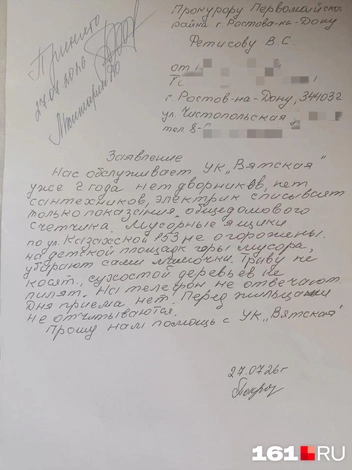 Принято
Прокурору Первомайского
района г Ростова-на-Дону
Фетисову В.С
от
г. Ростов-на-Дону, 344032
ул. Чистопольская
тел. 8-
Заявление
Нас обслуживает УК „Вятская"
уже 2 года нет дворников, нет
сантехников, электрик списывает
только показания общедомового
счетчика. Мусорные ящики
по ул. Казахской 153 не огорожены.
на детской площадк горы мусора,
убирают сами мамочки. Траву не
косят, сухостой деревьев не
пилят. На телефон не отвечают
Дня приема нет. Перед жильцами
не отчитываются.
Прошу нам помощь с УК „Вятская"
27.07.26г
161.RU